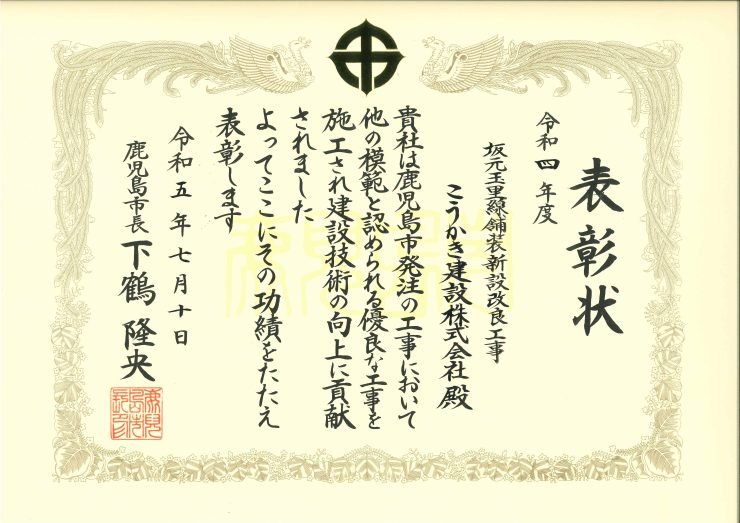 表彰状
令和四年度
坂元玉里線舗装新設改良工事
こうかき建設株式会社 殿
貴社は鹿児島市発注の工事において
他の模範と認められる優良な工事を
施工され建設技術の向上に貢献
されました
よってここにその功績をたたえ
表彰します
令和五年七月十日
鹿児島市長 下鶴隆央